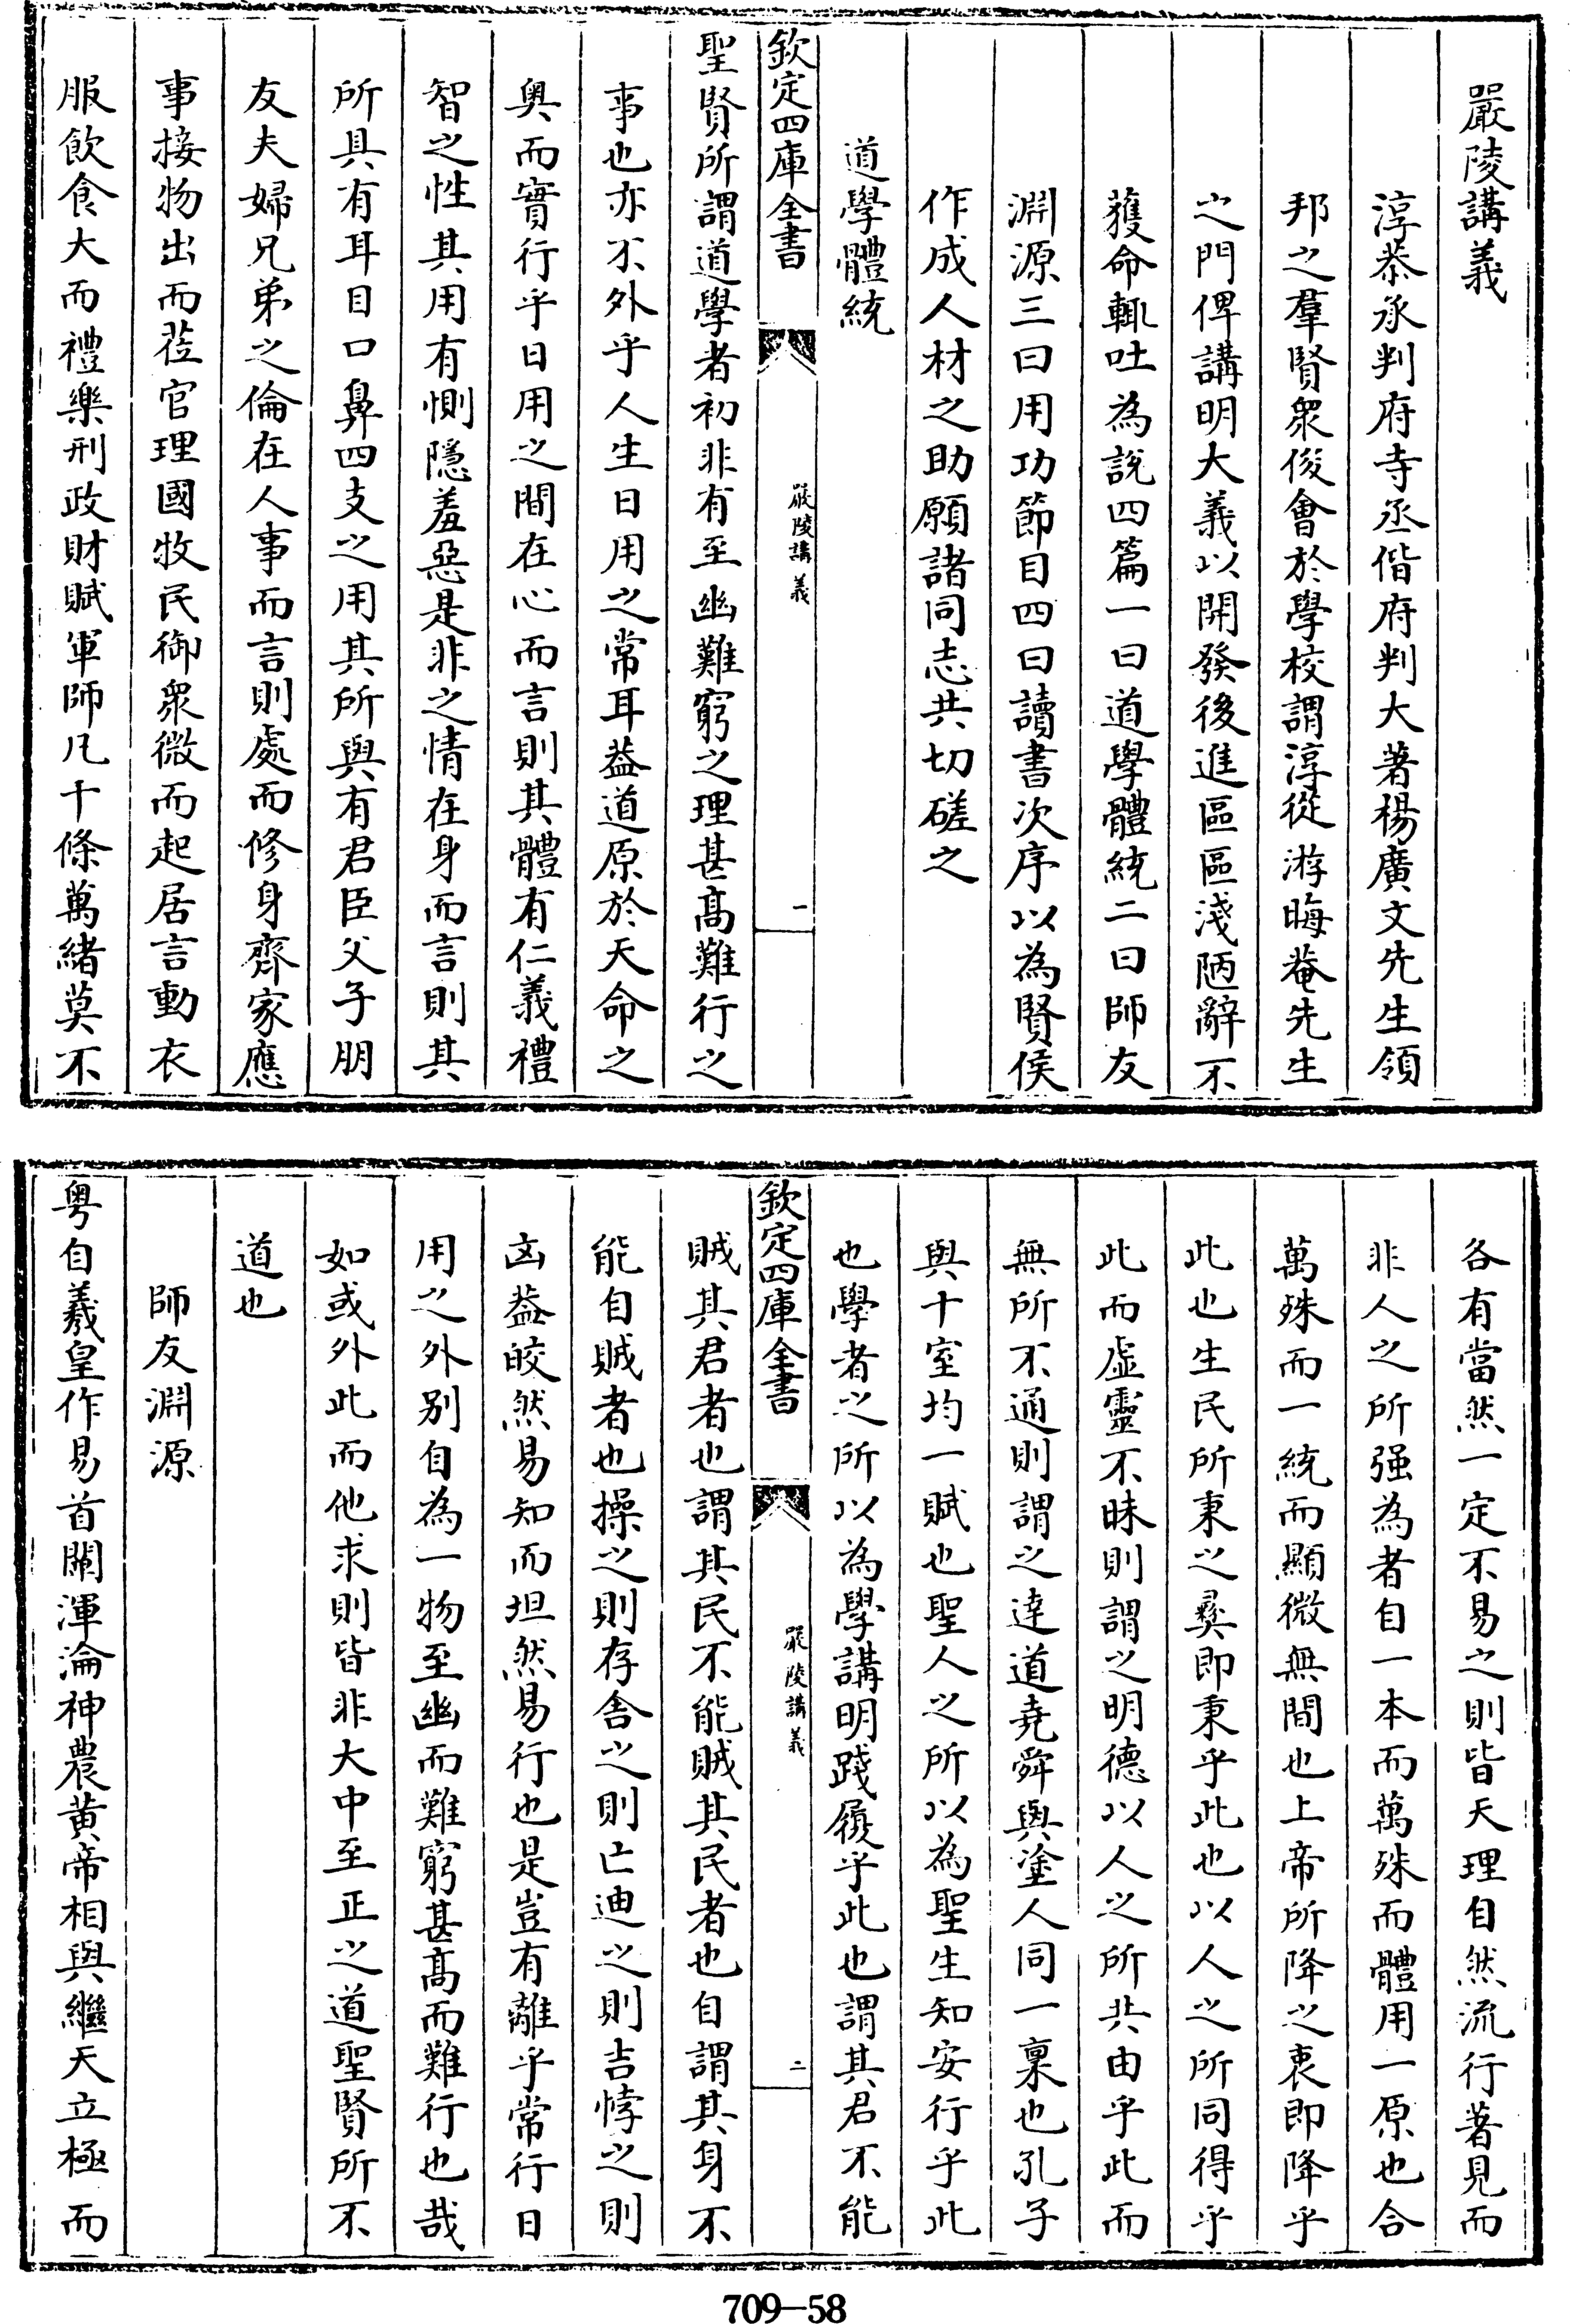 嚴陵講義
淳恭承判府寺丞偕府判大著楊廣文先生領
邦之羣賢衆俊會於學校謂淳從游晦菴先生
之門俾講明大義以開發後進區區淺陋辭不
獲命輒吐為說四篇一曰道學體統二曰師友
淵源三曰用功節目四曰讀書次序以為賢侯
作成人材之助願諸同志共切磋之
道學體統
欽定四庫全書
嚴陵講義
一
聖賢所謂道學者初非有至幽難窮之理甚髙難行之
事也亦不外乎人生日用之常耳葢道原於天命之
奥而實行乎日用之間在心而言則其體有仁義禮
智之性其用有惻隠羞惡是非之情在身而言則其
所具有耳目口鼻四支之用其所與有君臣父子朋
友夫婦兄弟之倫在人事而言則處而修身齊家應
事接物出而莅官理國牧民御衆微而起居言動衣
服飲食大而禮樂刑政財賦軍師凡千條萬緒莫不
各有當然一定不易之則皆天理自然流行著見而
非人之所强為者自一本而萬殊而體用一原也合
萬殊而一統而顯微無間也上帝所降之衷即降乎
此也生民所秉之彞即秉乎此也以人之所同得乎
此而虚靈不昧則謂之明德以人之所共由乎此而
無所不通則謂之達道堯舜與塗人同一稟也孔子
與十室均一賦也聖人之所以為聖生知安行乎此
也學者之所以為學講明踐履乎此也謂其君不能
欽定四庫全書
嚴陵講義
二
賊其君者也謂其民不能賊其民者也自謂其身不
能自賊者也操之則存舍之則亡迪之則吉悖之則
凶葢皎然易知而坦然易行也是豈有離乎常行日
用之外别自為一物至幽而難窮甚髙而難行也哉
如或外此而他求則皆非大中至正之道聖賢所不
道也
師友淵源
粤自羲皇作易首闡渾淪神農黄帝相與繼天立極而
709—58